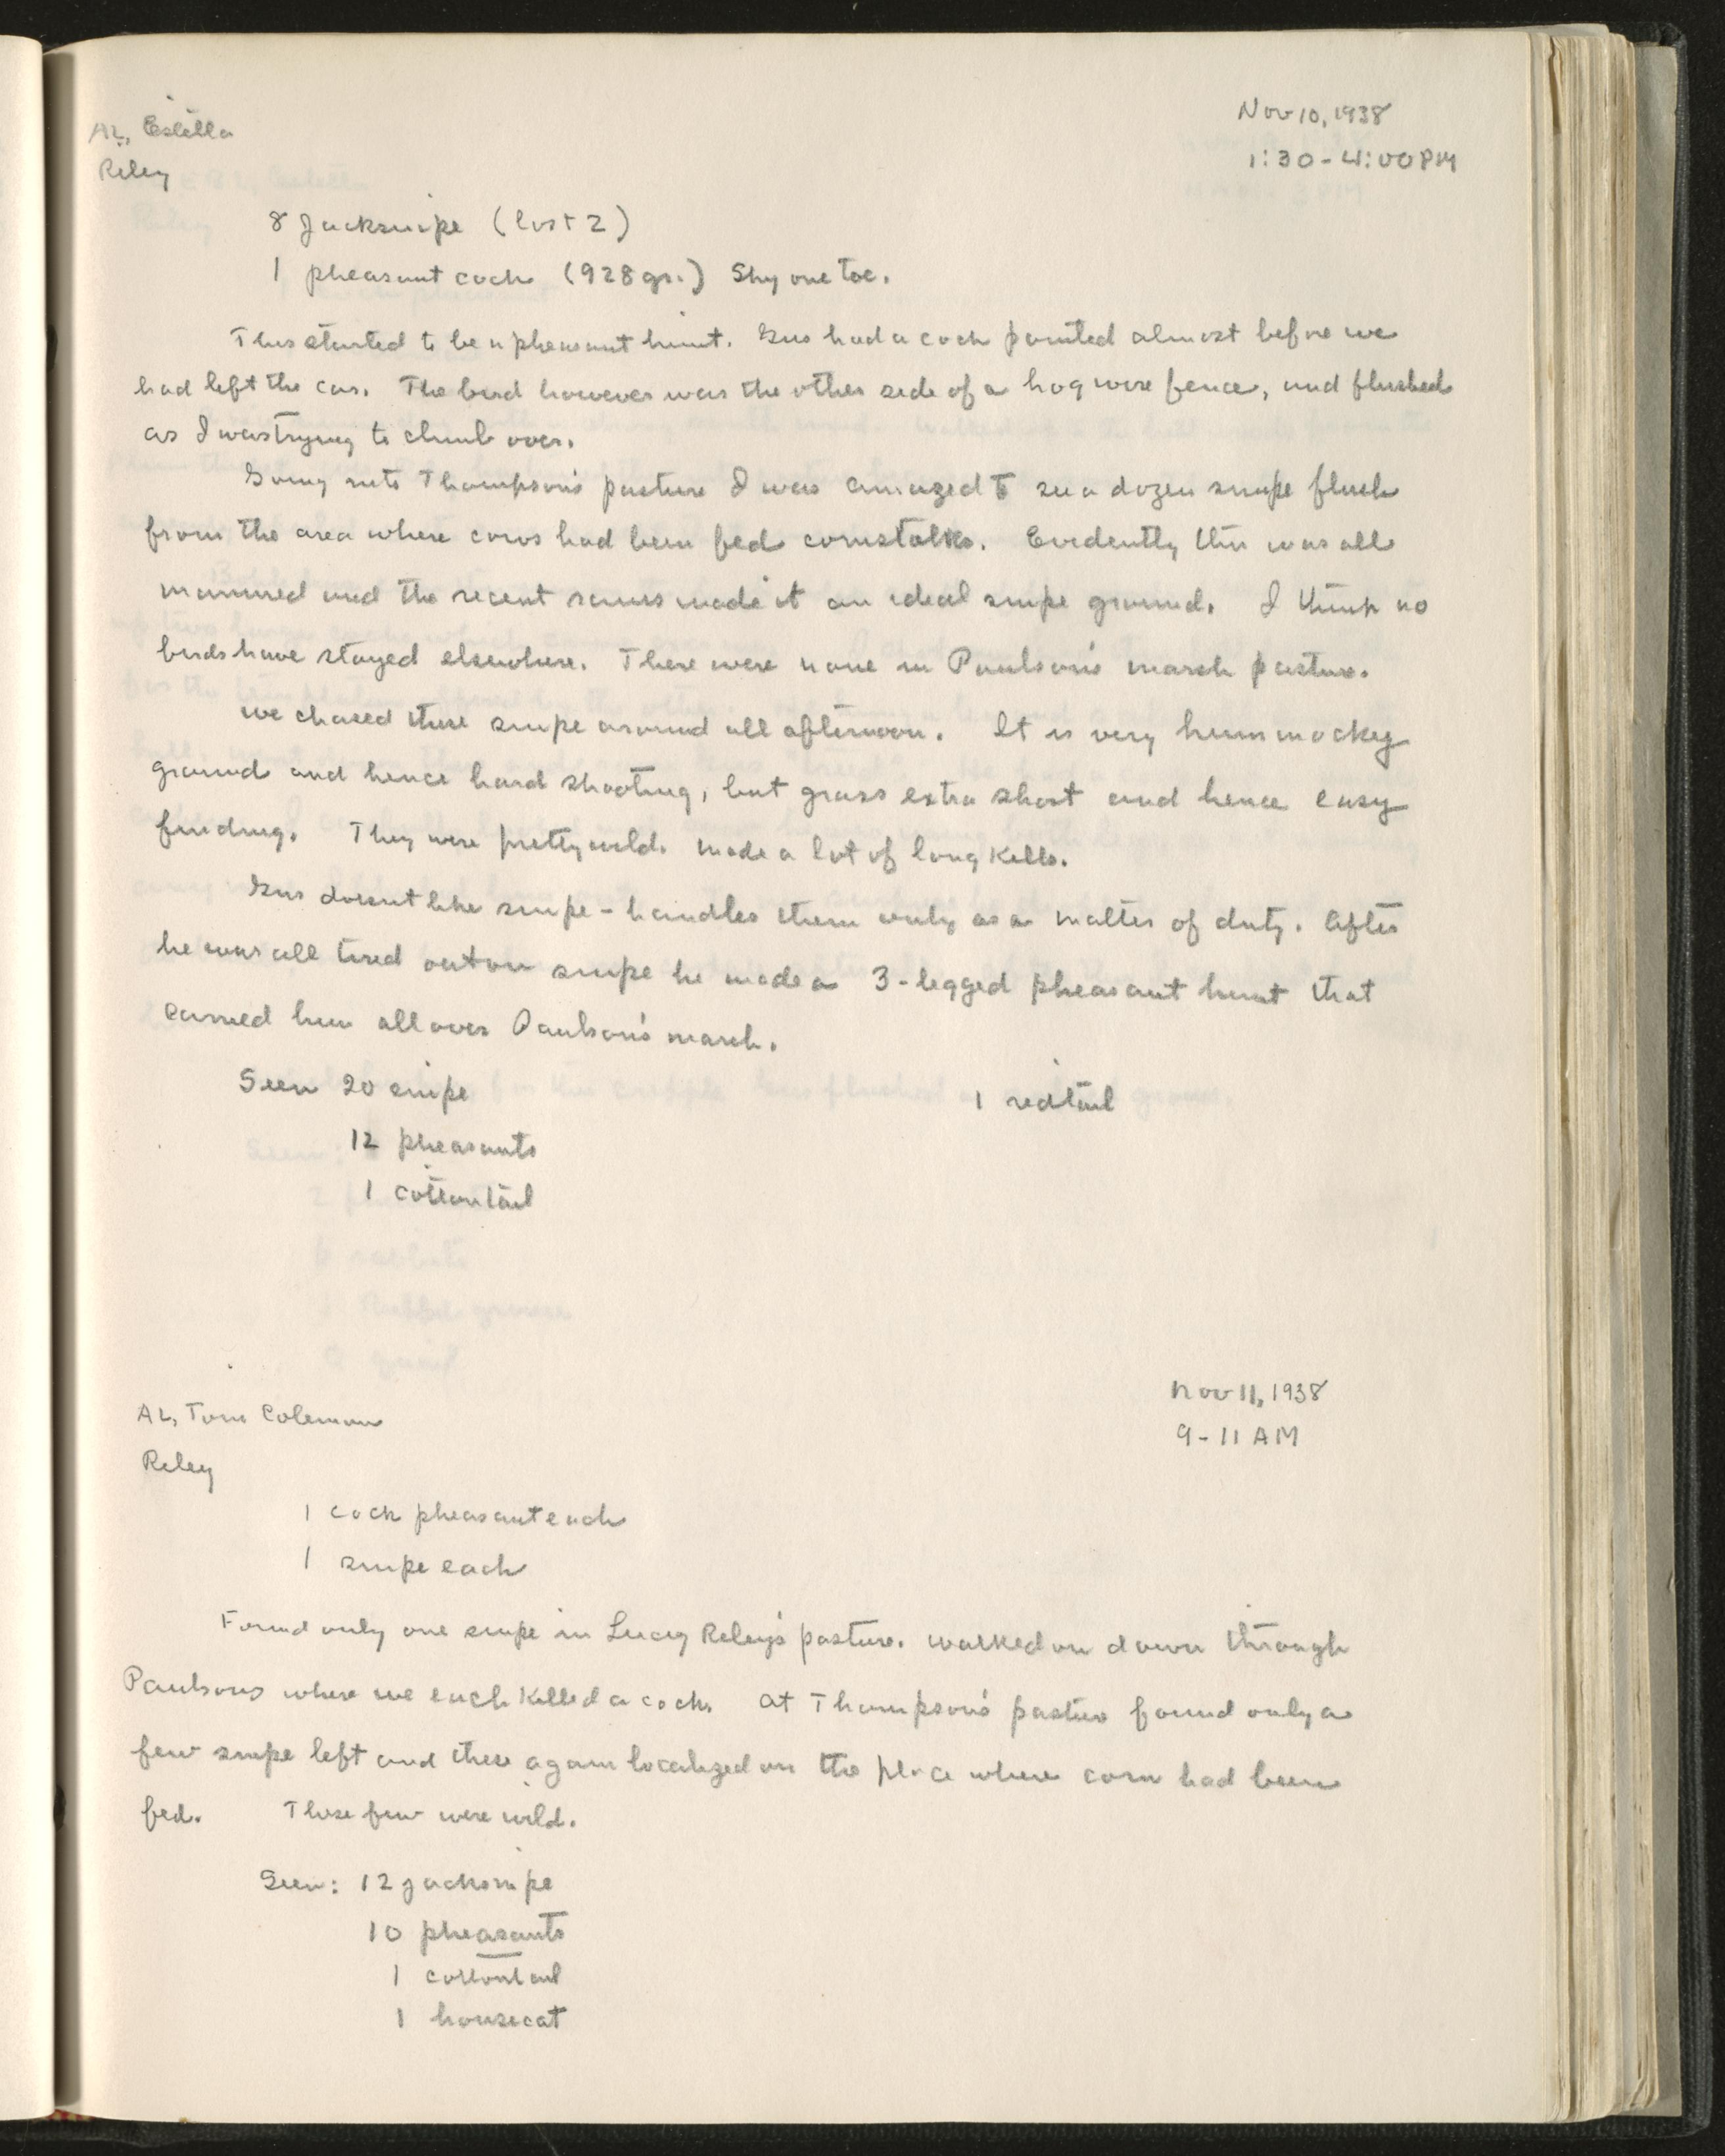 AL, Estella
Nov 10, 1938
Riley
1:30-4:00 PM
8 Jacksnipe (lost 2)
1 pheasant cock (928 gr.) Shy one toe.
This started to be a pheasant hunt. Gus had a cock pointed almost before we
had left the car. The bird however was the other side of a hog wire fence, and flushed
as I was trying to climb over.
Going into Thompson's pasture I was amazed to see a dozen snipe flush
from the area where cows had been fed cornstalks. Evidently this was all
manured and the recent rains made it an ideal snipe ground. I think no
birds have stayed elsewhere. There were none in Paulson's marsh pasture.
We chased these snipe around all afternoon. It is very hummocky
ground and hence hard shooting, but grass extra short and hence easy
finding. They were pretty wild. Made a lot of long kills.
Gus doesn't like snipe - handles them only as a matter of duty. After
he was all tired out on snipe he made a 3-legged pheasant hunt that
carried him all over Paulson's marsh.
Seen 20 snipe
1 redtail
12 pheasants
1 cottontail
AL, Tom Coleman
Nov 11, 1938
Riley
9-11 AM
1 cock pheasant each
1 snipe each
Found only one snipe in Lucy Riley's pasture. Walked on down through
Paulsons where we each killed a cock. At Thompson's pasture found only a
few snipe left and these again localized on the place where corn had been
fed. Those few were wild.
Seen: 12 jacksnipe
10 pheasants
1 cottontail
1 housecat